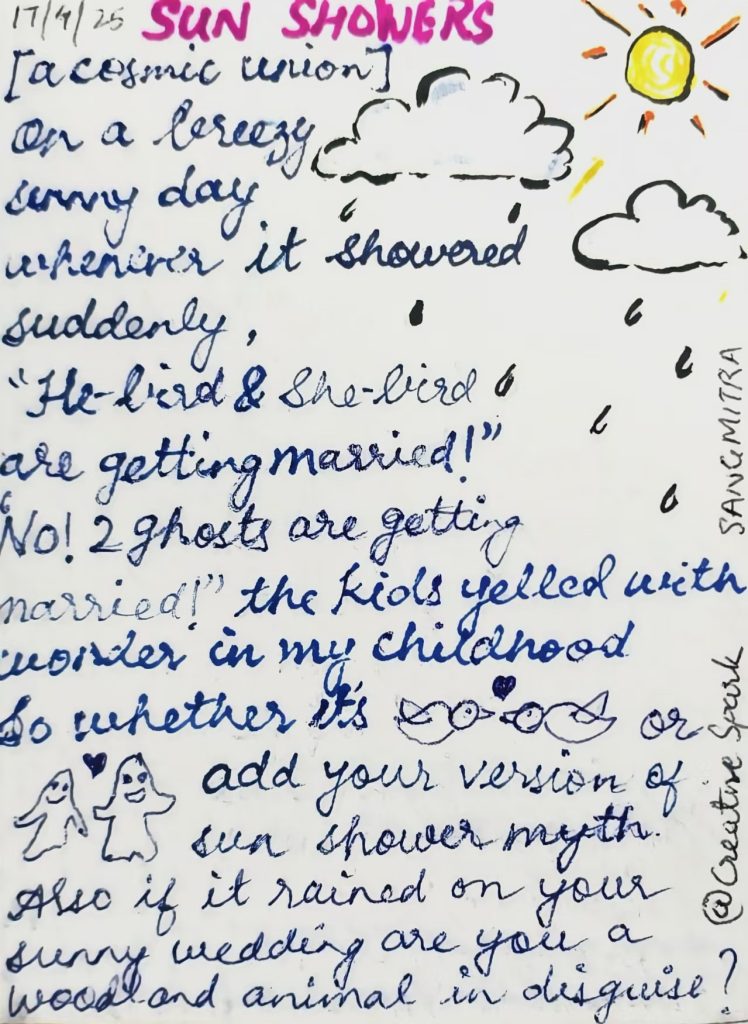 17/4/25 SUN SHOWERS
[a cosmic union]
On a breezy
sunny day
whenever it showered
suddenly,
"He-bird & She-bird
are getting married!"
"No! 2 ghosts are getting
married!" the kids yelled with
wonder in my childhood
So whether it's or
add your version of
sun shower myth.
Also if it rained on your
sunny wedding are you a
woodland animal in disguise?
@Creative Spark SANGMITRA